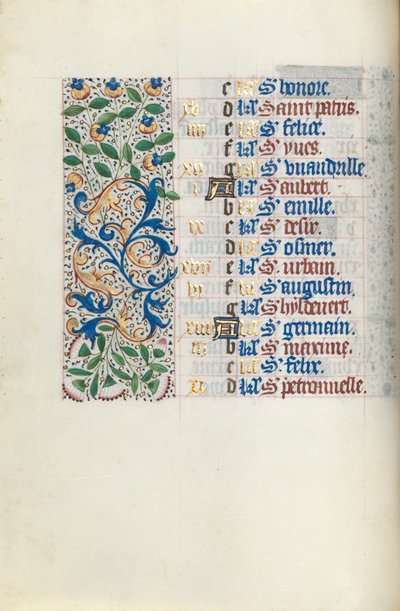 c kł S' honore.
d kł Saint patris.
iiii e kł S' felice.
f kł S' yues.
xij g kł S' vuandrille.
A kł S' aubert.
b kł S' emille.
ix c kł S' desir.
d kł S' osmer.
xvii e kł S' urbain.
vj f kł S' augustin.
g kł S' hyldeuert.
xiiii A kł S' germain.
iij b kł S' maxime.
c kł S' felix.
xi d kł S' petronnelle.